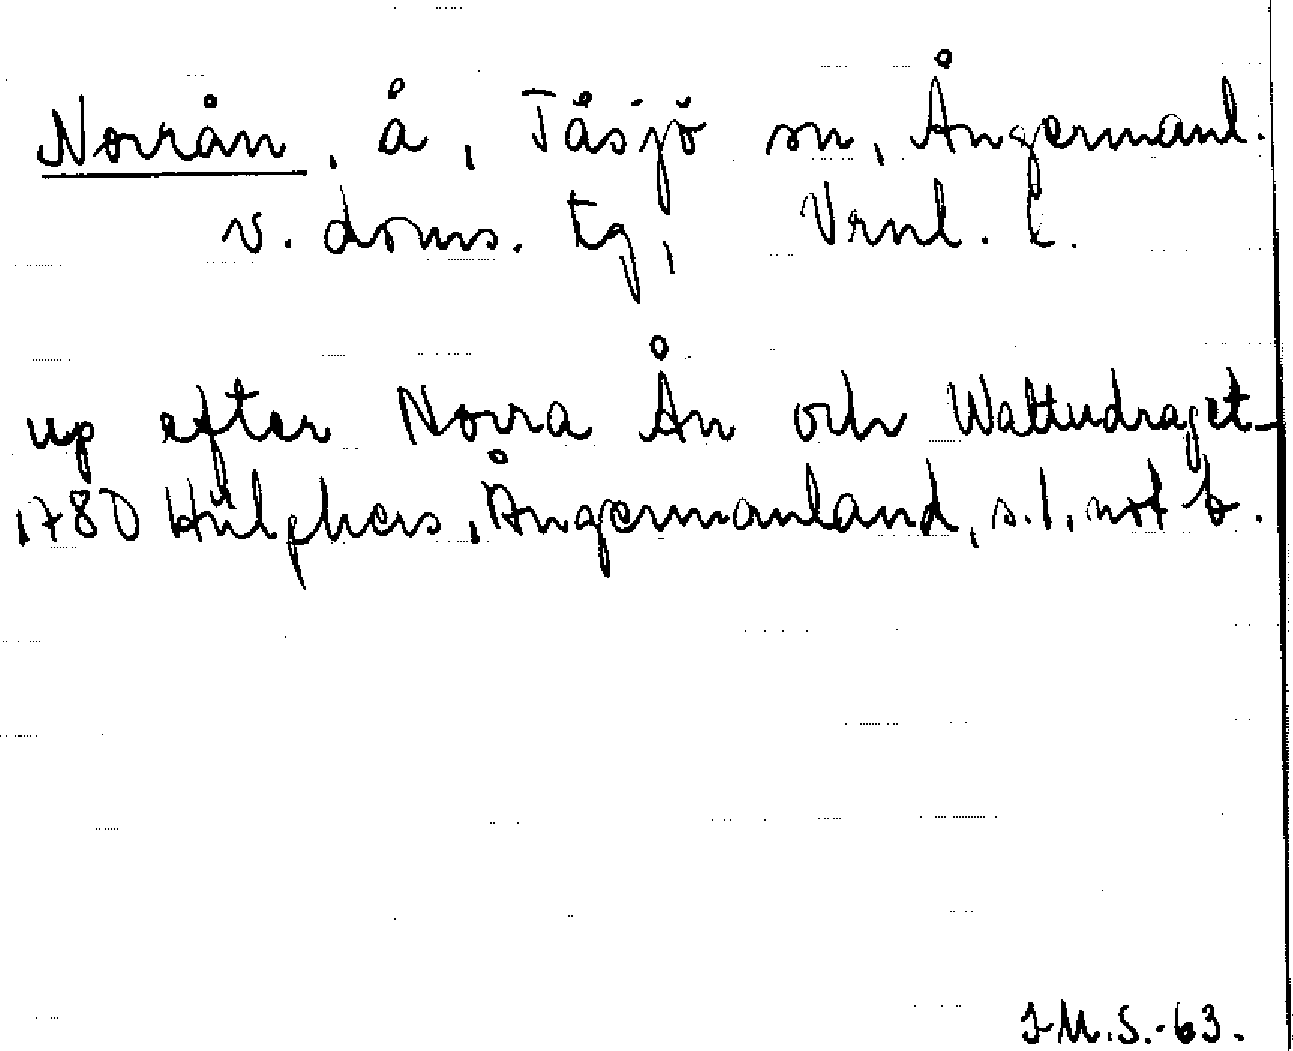 Norrån, å, Tåsjö sn, Ångermanl.
v. doms. tg, Vrnl. l.
up efter Norra Ån och Wattudraget -
1780 Hülphers, Ångermanland, s. 1, not b.
J-M.S.-63.